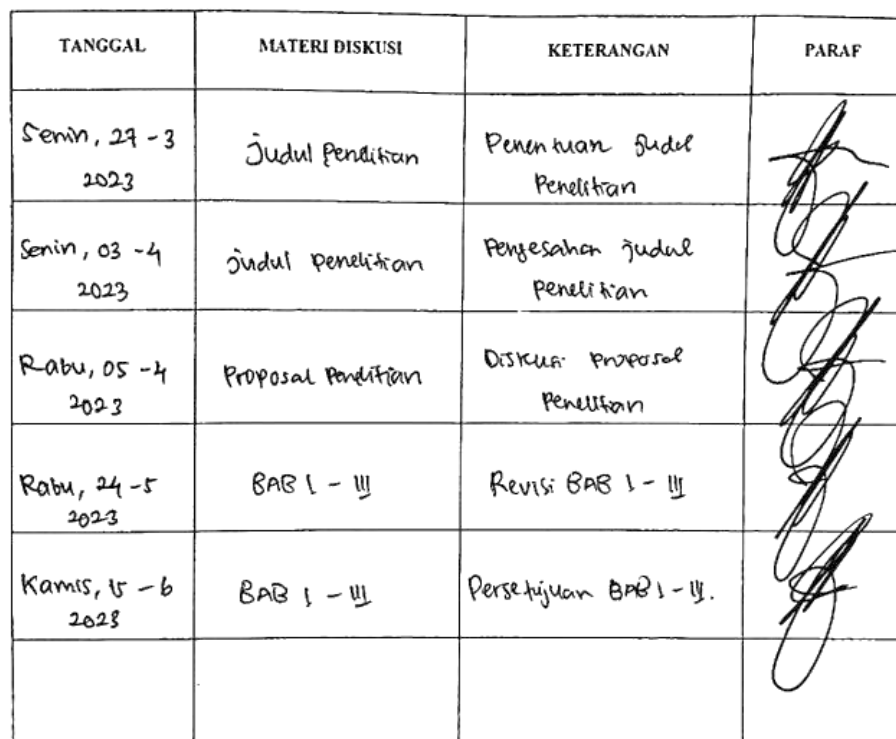 TANGGAL MATERI DISKUSI KETERANGAN PARAF
Senin, 27-3 Judul Penelitian Penentuan Judul
2023 Penelitian
Senin, 03-4 Judul Penelitian Pengesahan Judul
2023 Penelitian
Rabu, 05-4 Proposal Penelitian Diskusi proposal
2023 Penelitian
Rabu, 24-5 BAB I - III Revisi BAB I - III
2023
Kamis, 15-6 BAB I - III Persetujuan BAB I - III.
2023